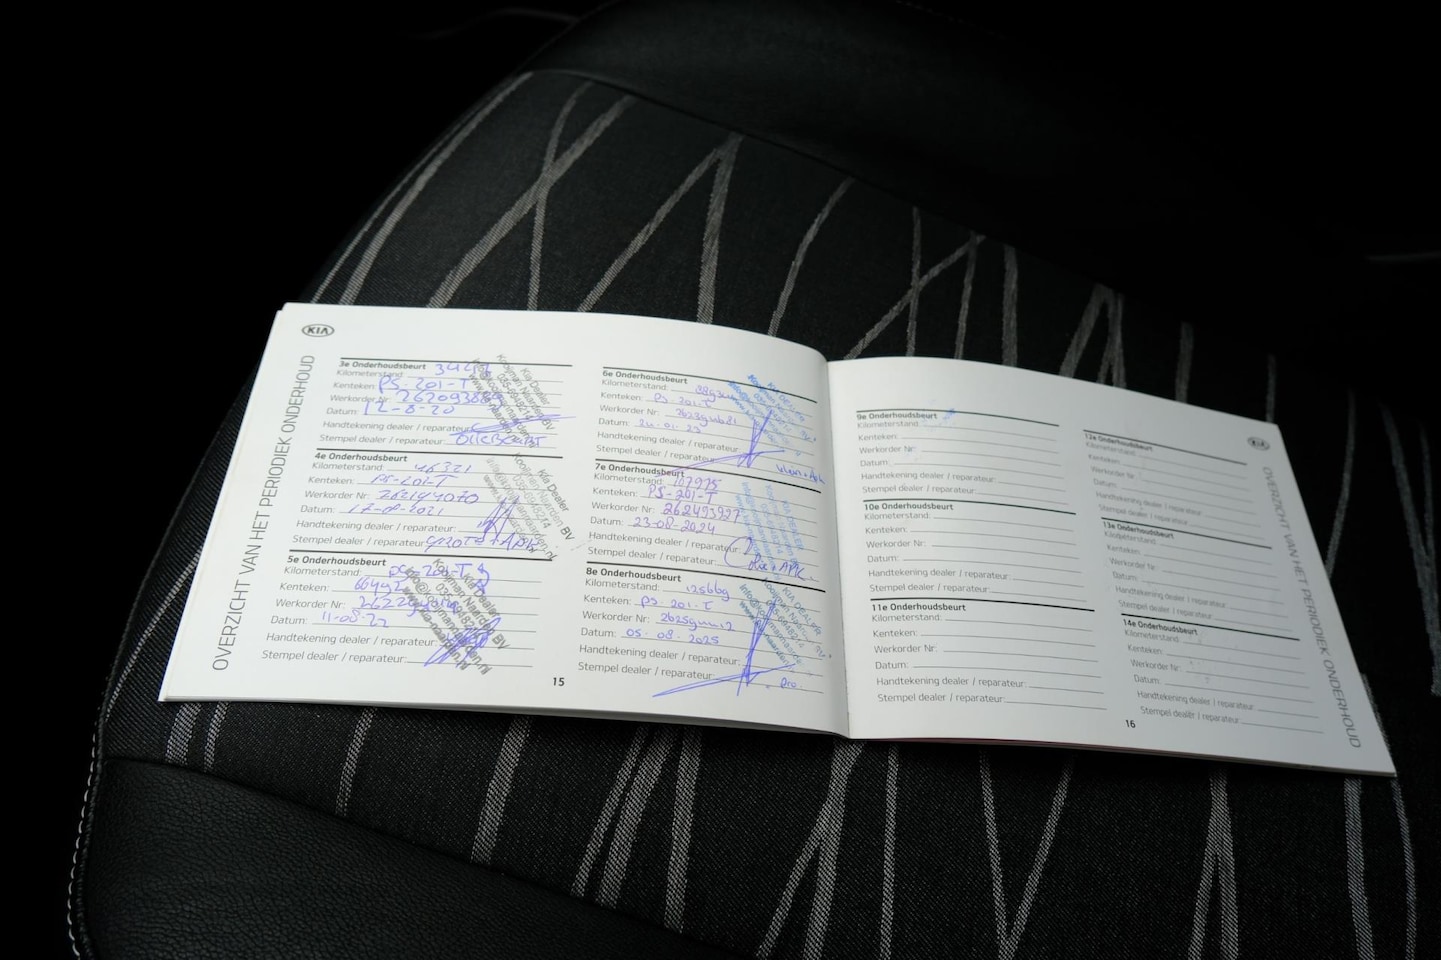 KIA
OVERZICHT VAN HET PERIODIEK ONDERHOUD
3e Onderhoudsbeurt
Kilometerstand:
Kenteken: PS-201-T
Werkorder Nr:
Datum: 12-8-20
Handtekening dealer / reparateur:
Stempel dealer / reparateur:
Kia Dealer
Kooijman Naarden BV
4e Onderhoudsbeurt
Kilometerstand: 46321
Kenteken: PS-201-T
Werkorder Nr: 262194070
Datum: 17-08-2021
Handtekening dealer / reparateur:
Stempel dealer / reparateur: Groot + APK
Kia Dealer
Kooijman Naarden BV
5e Onderhoudsbeurt
Kilometerstand: PS-201-T
Kenteken:
Werkorder Nr:
Datum: 11-08-22
Handtekening dealer / reparateur:
Stempel dealer / reparateur:
Kia Dealer
Kooijman Naarden BV
6e Onderhoudsbeurt
Kilometerstand:
Kenteken: PS-201-T
Werkorder Nr:
Datum:
Handtekening dealer / reparateur:
Stempel dealer / reparateur: Klein + Apk
KIA DEALER
7e Onderhoudsbeurt
Kilometerstand: 107975
Kenteken: PS-201-T
Werkorder Nr: 262493927
Datum: 23-08-2024
Handtekening dealer / reparateur:
Stempel dealer / reparateur:
KIA DEALER
8e Onderhoudsbeurt
Kilometerstand:
Kenteken: PS 201-T
Werkorder Nr:
Datum: 05-08-2025
Handtekening dealer / reparateur:
Stempel dealer / reparateur:
KIA DEALER
15
9e Onderhoudsbeurt
Kilometerstand:
Kenteken:
Werkorder Nr:
Datum:
Handtekening dealer / reparateur:
Stempel dealer / reparateur:
10e Onderhoudsbeurt
Kilometerstand:
Kenteken:
Werkorder Nr:
Datum:
Handtekening dealer / reparateur:
Stempel dealer / reparateur:
11e Onderhoudsbeurt
Kilometerstand:
Kenteken:
Werkorder Nr:
Datum:
Handtekening dealer / reparateur:
Stempel dealer / reparateur:
12e Onderhoudsbeurt
Kilometerstand:
Kenteken:
Werkorder Nr:
Datum:
Handtekening dealer / reparateur:
Stempel dealer / reparateur:
13e Onderhoudsbeurt
Kilometerstand:
Kenteken:
Werkorder Nr:
Datum:
Handtekening dealer / reparateur:
Stempel dealer / reparateur:
14e Onderhoudsbeurt
Kilometerstand:
Kenteken:
Werkorder Nr:
Datum:
Handtekening dealer / reparateur:
Stempel dealer / reparateur:
16
KIA
OVERZICHT VAN HET PERIODIEK ONDERHOUD